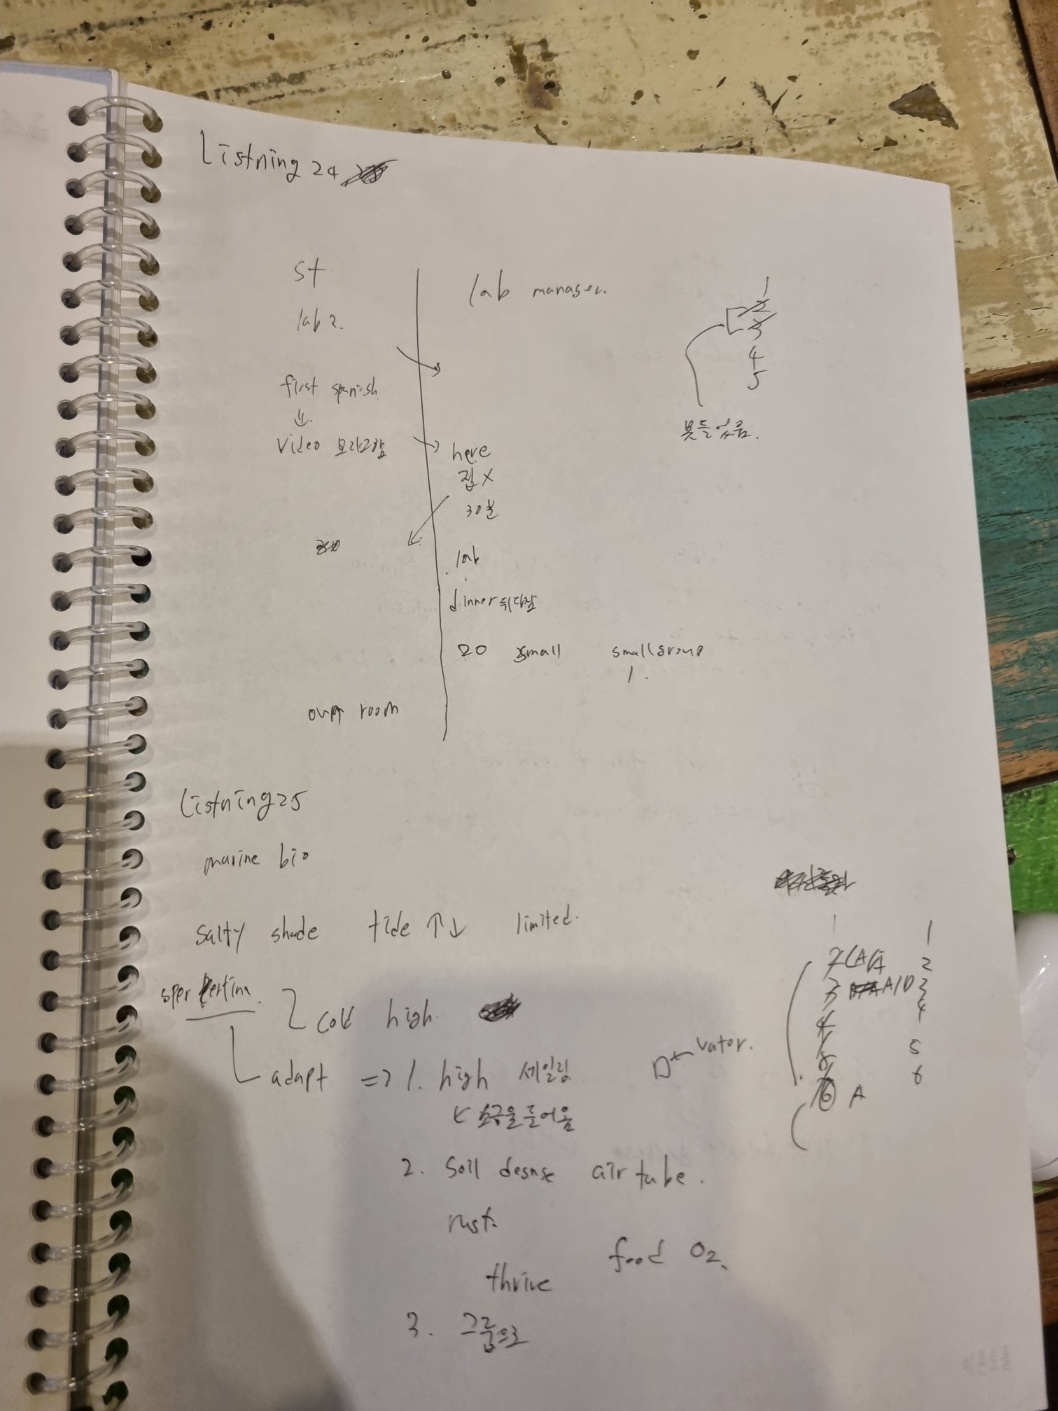 Listning 24
st
lab manager.
lab 2.
1
2
3
4
5
first spanish
↓
video 보라고함
못들었음.
here
집 X
30분
lab
dinner 쉬다감
20 small small group
1.
room
Listning 25
marine bio
salty shade tide ↑↓ limited.
cold high.
adapt => 1. high 세일링
소금을 들어옴
2. Soil desnse air tube.
rust.
food O2
thrive
3. 그룹으로
1 1
2 2
3 A/D 3
4 4
5 5
6 A 6